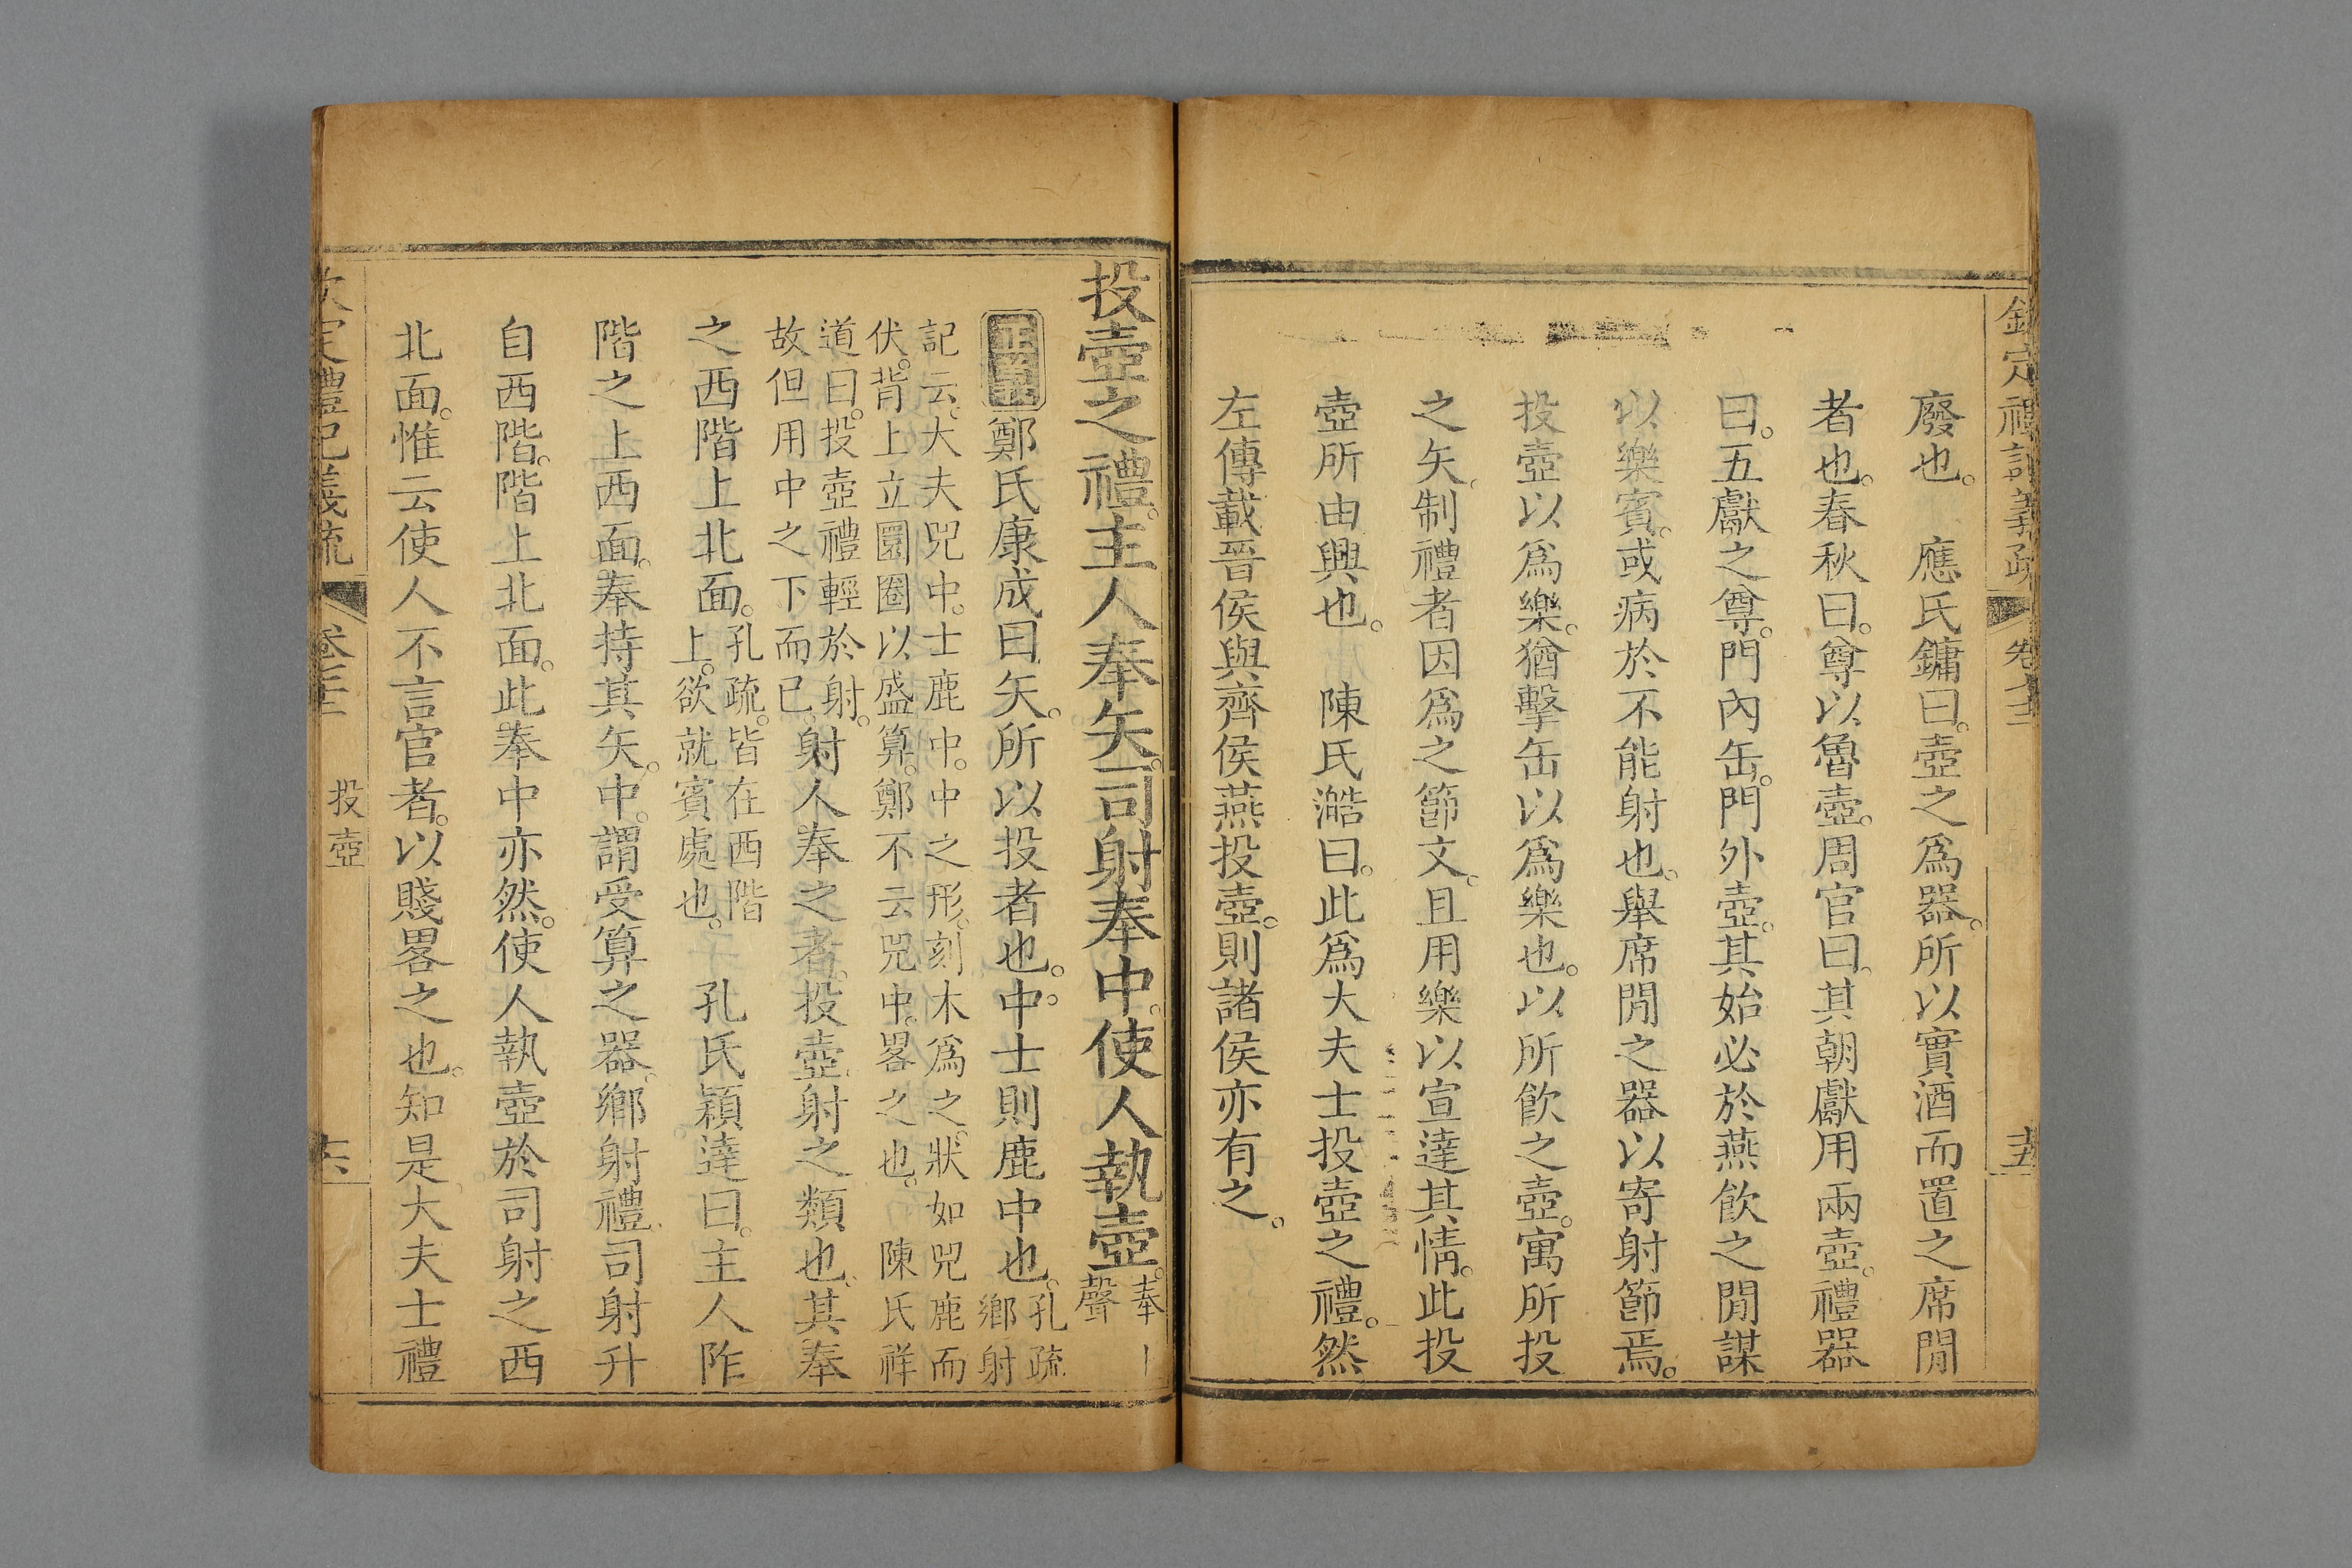 欽定禮記義疏 卷七十二 十五
廢也。 應氏鏞曰。壺之爲器。所以實酒而置之席閒
者也。春秋曰。尊以魯壺。周官曰。其朝獻用兩壺。禮器
曰。五獻之尊。門內缶。門外壺。其始必於燕飮之閒謀
以樂賓。或病於不能射也。舉席閒之器以寄射節焉。
投壺以爲樂。猶擊缶以爲樂也。以所飮之壺。寓所投
之矢。制禮者因爲之節文。且用樂以宣達其情。此投
壺所由興也。 陳氏澔曰。此爲大夫士投壺之禮。然
左傳載晉侯與齊侯燕投壺。則諸侯亦有之。
投壺之禮。主人奉矢。司射奉中。使人執壺。奉
聲
正義 鄭氏康成曰。矢。所以投者也。中。士則鹿中也。孔疏
鄉射
記云。大夫兕中。士鹿中。中之形。刻木爲之。狀如兕鹿而
伏。背上立圜圈以盛算。鄭不云兕中。畧之也。 陳氏祥
道曰。投壺禮輕於射。
故但用中之下而已。射人奉之者。投壺。射之類也。其奉
之西階上北面。孔疏。皆在西階
上。欲就賓處也。 孔氏穎達曰。主人阼
階之上西面。奉持其矢。中。謂受算之器。鄉射禮。司射升
自西階。階上北面。此奉中亦然。使人執壺於司射之西
北面。惟云使人不言官者。以賤畧之也。知是大夫士禮
欽定禮記義疏 投壺 十六